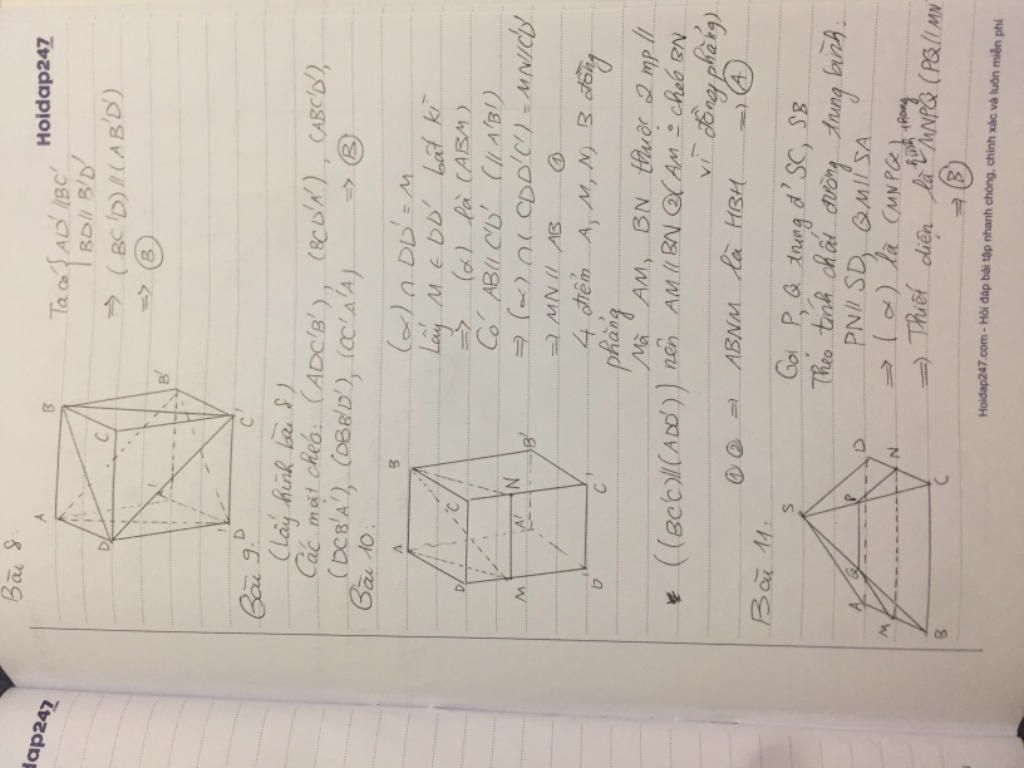 Hoidap247
Bài 8:
A
B
D
C
B'
D
C'
Ta có { AD' // BC'
BD // B'D'
⇒ (BC'D) // (AB'D')
⇒ Ⓑ
Bài 9:
(Lấy hình bài 8)
Các mặt chéo: (ADC'B'), (BCD'A'), (ABC'D'),
(DCB'A'), (DBB'D'), (CC'A'A) ⇒ Ⓑ
Bài 10:
A
B
D
C
M
N
B'
D'
C'
(α) ∩ DD' = M
Lấy M ∈ DD' bất kì
⇒ (α) là (ABM)
Có AB // C'D' (// A'B')
⇒ (α) ∩ (CDD'C') = MN // C'D'
⇒ MN // AB ①
4 điểm A, M, N, B đồng
phẳng
Mà AM, BN thuộc 2 mp //
((BC'C) // (ADD')) nên AM // BN ② (AM chéo BN
vì đồng phẳng)
①② ⇒ ABNM là HBH ⇒ Ⓐ
Bài 11:
S
A
Q
P
D
M
N
B
C
Gọi P, Q trung đ' SC, SB
Theo tính chất đường trung bình:
PN // SD, QM // SA
⇒ (α) là (MNPQ)
⇒ Thiết diện là hình thang MNPQ (PQ // MN
⇒ Ⓑ
Hoidap247.com - Hỏi đáp bài tập nhanh chóng, chính xác và luôn miễn phí
dap247